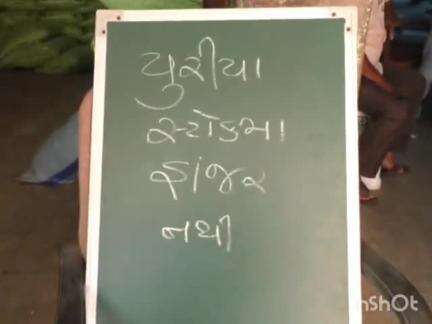 યુરીયા
સ્ટોકમા
હાંજર
નથી
InShOt